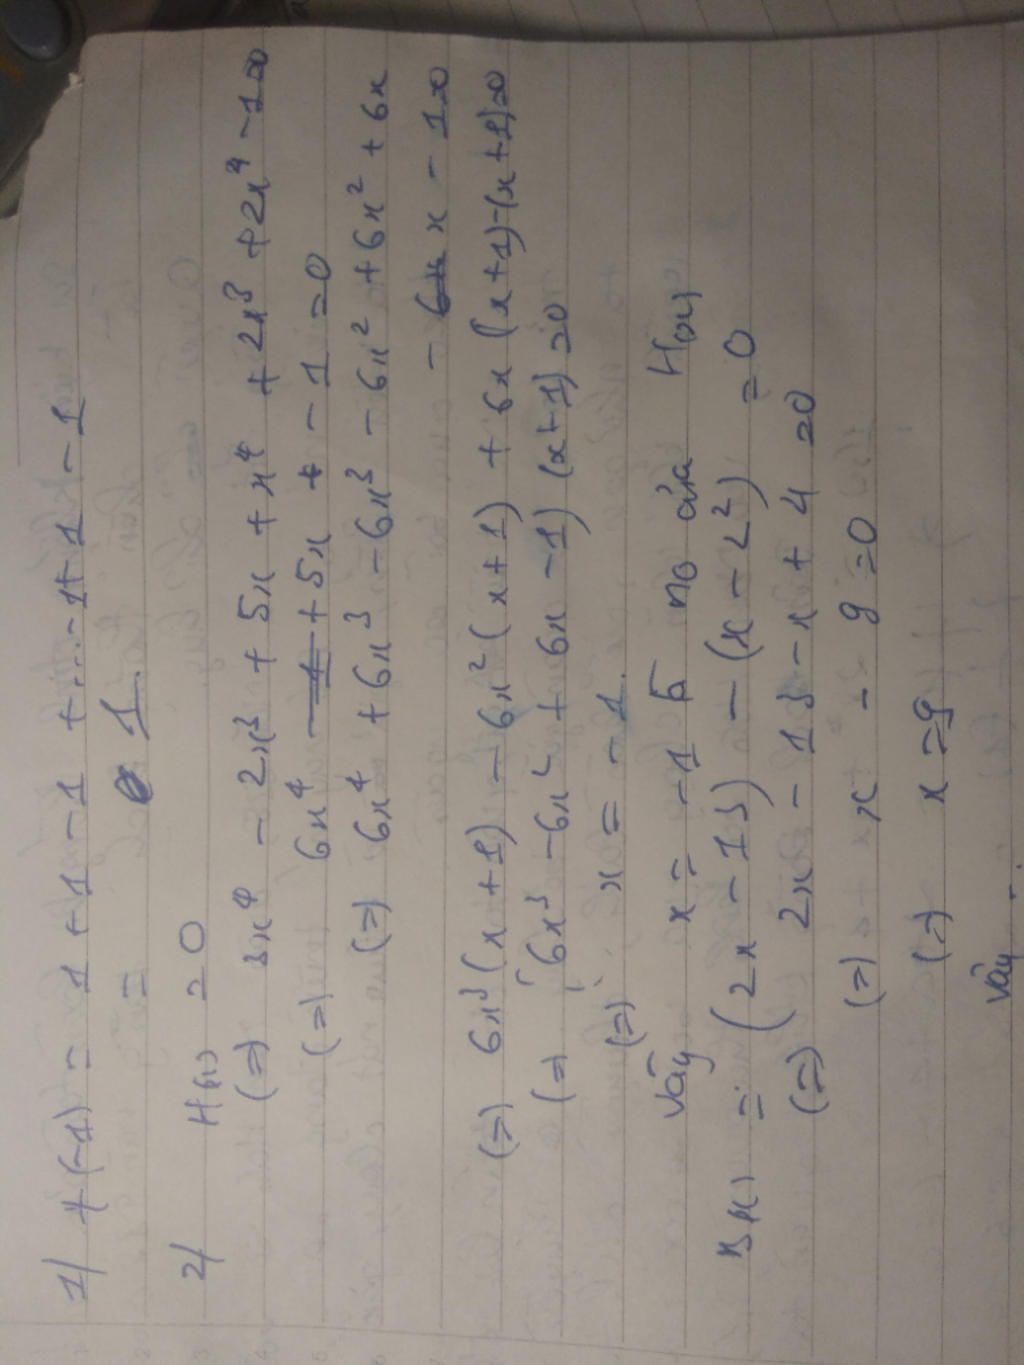 1/ f(-1) = 1 + 1 - 1 + 1 - 1 + ... - 1 + 1 - 1
= 1.
2/ H(x) = 0
(=) 3x⁴ - 2x³ + 5x + x⁴ + 2x³ + 2x⁴ - 1 = 0
(=) 6x⁴ + 5x - 1 = 0
(=) 6x⁴ + 6x³ - 6x³ - 6x² + 6x² + 6x
- x - 1 = 0
(=) 6x³(x + 1) - 6x²(x + 1) + 6x(x + 1) - (x + 1) = 0
(=) (6x³ - 6x² + 6x - 1)(x + 1) = 0
(=) x = -1.
Vậy x = -1 là no của H(x)
B(x) = (2x - 13) - (x - 2²) = 0
(=) 2x - 13 - x + 4 = 0
(=) x - 9 = 0
(=) x = 9
Vậy ...